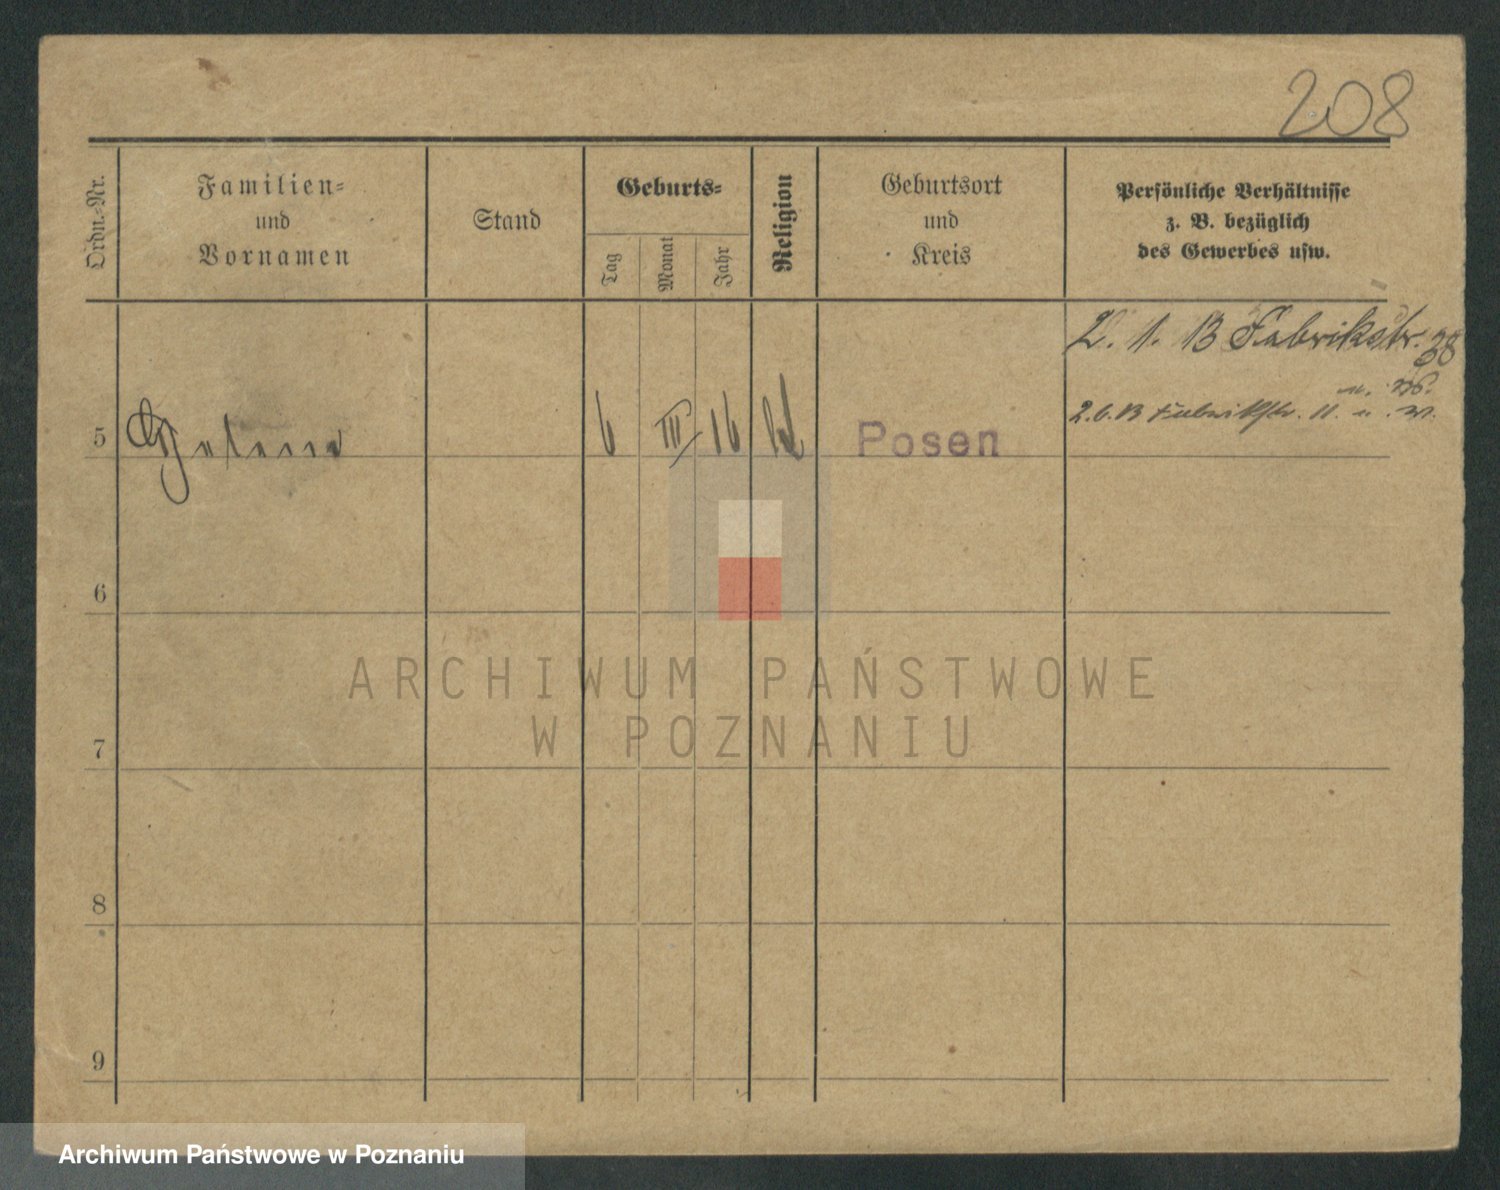 208
Ordn.-Nr.
Familien-
und
Vornamen
Stand
Geburts-
Tag
Monat
Jahr
Religion
Geburtsort
und
Kreis
Persönliche Verhältnisse
z. B. bezüglich
des Gewerbes usw.
2. 1. 13 Fabrikstr. 38
2.6.13 Fabrikstr. 11.
5 Helene 6 III 16 Posen
6
7
8
9
ARCHIWUM PAŃSTWOWE
W POZNANIU
Archiwum Państwowe w Poznaniu